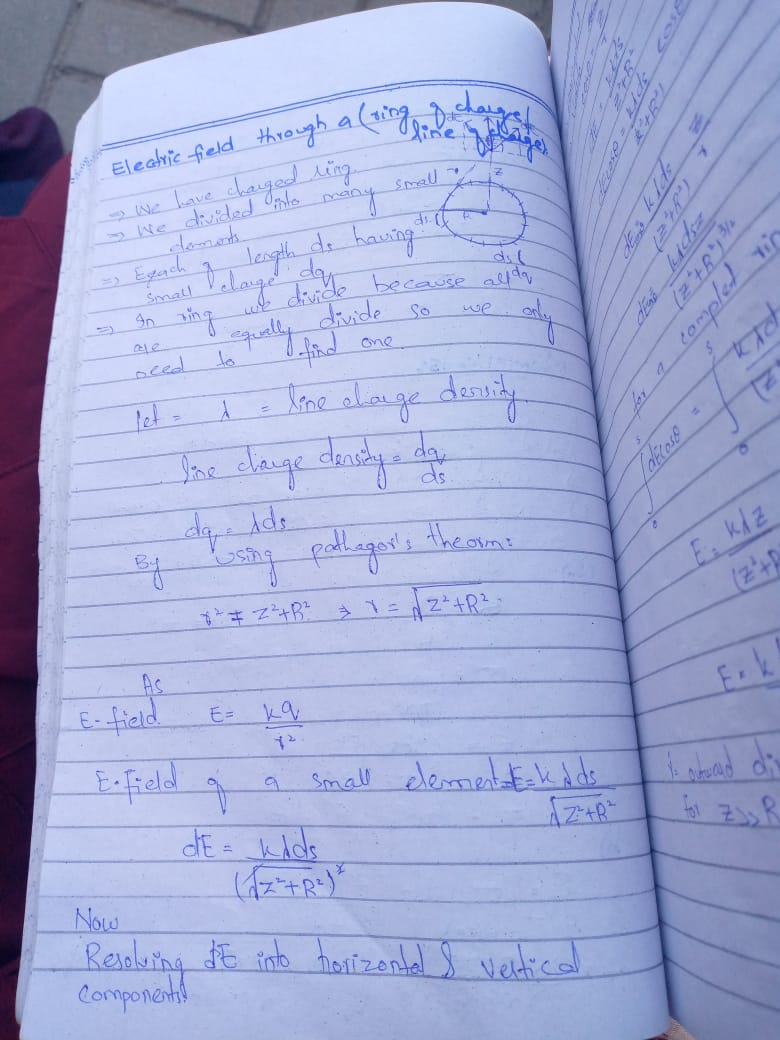 Electric field through a (ring of charge /
line of charge).
⇒ We have charged ring.
⇒ We divided into many small
elements
⇒ Eeach of length ds having
small charge dq
⇒ In ring we divide because all dq
are equally divide so we only
need to find one.
z
R
ds
ds
dq
let = λ = line charge density.
line charge density = dq/ds
dq = λds
By Using pathagor's theorm:
r² = z²+R² ⇒ r = √z²+R².
As
E-field E = kq/r²
E-field of a small element = E = kλds/√z²+R²
dE = kλds/(√z²+R²)²
Now
Resolving dE into horizontal & vertical
components
dE = kλds/z²+R²
dEcosθ = kλds/(z²+R²) cosθ
dEcosθ = kλds/(z²+R²) z/r
dEcosθ = kλdsz/(z²+R²)^3/2
for a completed rin
∫dEcosθ = ∫ kλd
E = kλz
(z²+R
E = kλ
outward di
for z>>R